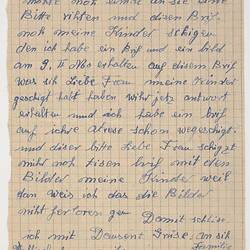 möhte noh einmal an sie eine
Bitte rihten und disen Brif
noh meine Kinder schigen
den ich habe ein brf und ein bild
am 9. II Nko erhalten auf disem Brif
was sih Liebe Frau meine Kinder
geschigt habt haben wihr jetz antwort
erhalten und ich habe ein brf
auf ihre adrese schon wegeschigt
und diser bitte Liebe Frau schigt
mihr noh disen brif mit den
Bilder meine Kinder weil
dan weis ich das die Bilder
niht ferloren gen
Damit schlise
ich mit Dausent Grüse an sih
Familie